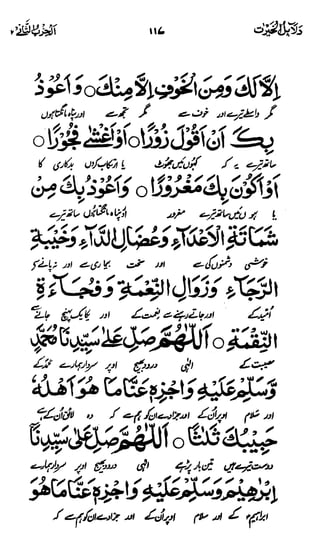 دلائل الخیرات ۱۱۷ الحزب الثانی
اِلَّا لَكَ وَمِنَ الْخَوْفِ اِلَّا مِنْكَ ○ وَاَعُوْذُ
مگر واسطے تیرے اور خوف سے مگر تجھ سے اور پناہ مانگتا ہوں
بِكَ اَنْ اَقُوْلَ زُوْرًا ○ اَوْ اَغْشٰى فُجُوْرًا ○
ساتھ تیرے یہ کہ کہوں میں جھوٹ یا ارتکاب کروں بدکاری کا
اَوْ اَكُوْنَ بِكَ مَغْرُوْرًا ○ وَاَعُوْذُ بِكَ مِنْ
یا ہوں میں ساتھ تیرے مغرور اور پناہ مانگتا ہوں ساتھ تیرے
شَمَاتَةِ الْاَعْدَآءِ وَعُضَالِ الدَّآءِ وَخَيْبَةِ
خوشی دشمنوں کی سے اور سخت بیماری سے اور نہ پانے کو
الرَّجَآءِ وَزَوَالِ النِّعْمَةِ وَفُجَآءَةِ
امید کے اور جاتے رہنے سے نعمت کے اور یکایک پہنچ جانے سے
النِّقْمَةِ ○ اَللّٰهُمَّ صَلِّ عَلٰى سَيِّدِنَا مُحَمَّدٍ
مصیبت کے الٰہی درود بھیج اوپر سردار ہمارے محمد کے
وَّسَلِّمْ عَلَيْهِ وَاجْزِهٖ عَنَّا مَا هُوَ اَهْلُهٗ
اور سلام اوپر اُن کے اور جزا دے ان کو ہم سے کہ وہ لائق اُن کے ہے
حَبِيْبُكَ ثَلٰثًا ○ اَللّٰهُمَّ صَلِّ عَلٰى سَيِّدِنَا
دوست تیرے ہیں تین بار پڑھے الٰہی درود بھیج اوپر سردار ہمارے
اِبْرٰهِيْمَ وَسَلِّمْ عَلَيْهِ وَاجْزِهٖ عَنَّا مَا هُوَ
ابراہیم کے اور سلام اوپر اُن کے اور جزا دے ان کو ہم سے کہ